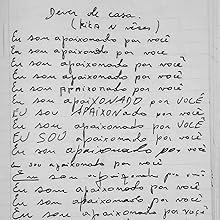 Dever de casa
(Rita N vêses)
Eu sou apaixonado por você
Eu sou apaixonado por você
Eu sou apaixonado por você
Eu sou apaixonado por você
Eu sou apaiXONADO por VOCÊ
Eu sou APAIXONADO por você
EU SOU apaixonado por você
Eu sou apaixonado por você
Eu sou apaixonado por você
Eu sou apaixonado por você
Eu sou apaixonado por você
Eu sou apaixonado por você
Eu sou apaixonado por você